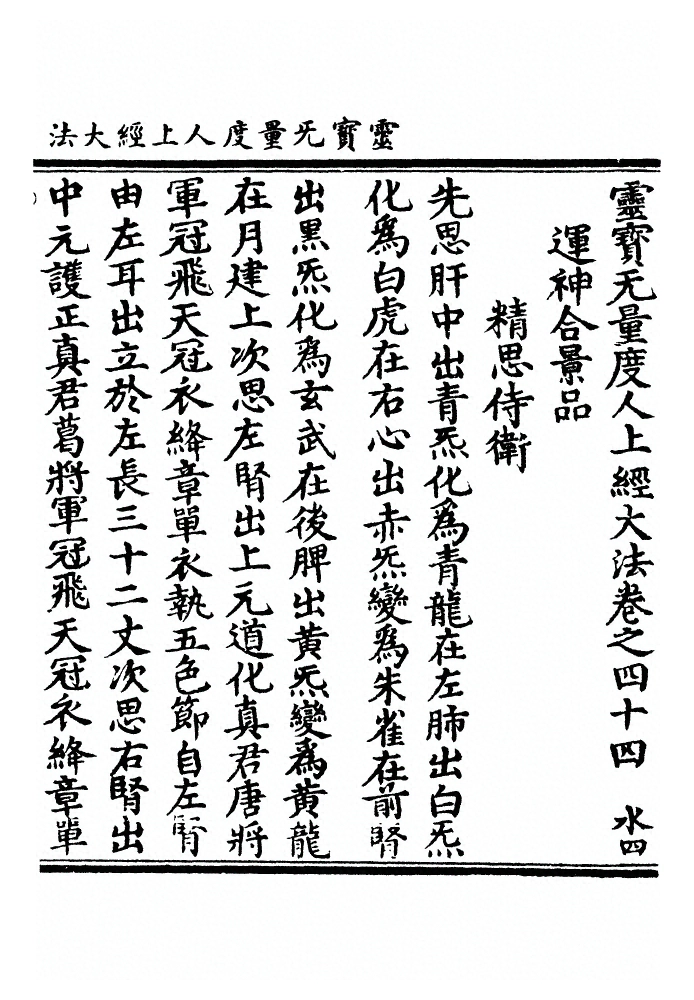 靈寳无量度人上經大法
靈寳无量度人上經大法卷之四十四 水四
運神合景品
精思侍衛
先思肝中出青炁化為青龍在左肺出白炁
化為白虎在右心出赤炁變為朱雀在前腎
出黑炁化為玄武在後脾出黃炁變為黃龍
在月建上次思左腎出上元道化真君唐將
軍冠飛天冠衣絳章單衣執五色節自左腎
由左耳出立於左長三十二丈次思右腎出
中元護正真君葛將軍冠飛天冠衣絳章單